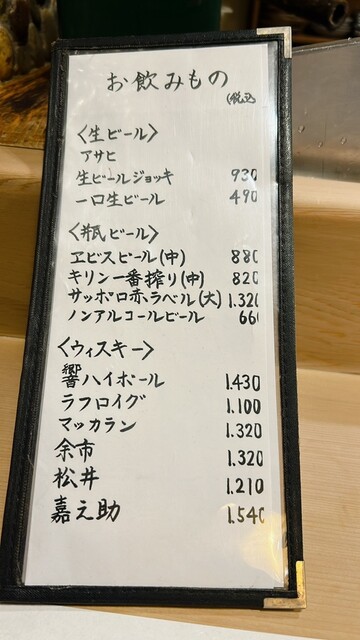 お飲みもの
(税込
〈生ビール〉
アサヒ
生ビールジョッキ 930
一口生ビール 490
〈瓶ビール〉
ヱビスビール(中) 880
キリン一番搾り(中) 820
サッポロ赤ラベル(大) 1.320
ノンアルコールビール 660
〈ウィスキー〉
響ハイボール 1.430
ラフロイグ 1.100
マッカラン 1.320
余市 1.320
松井 1.210
嘉之助 1.540